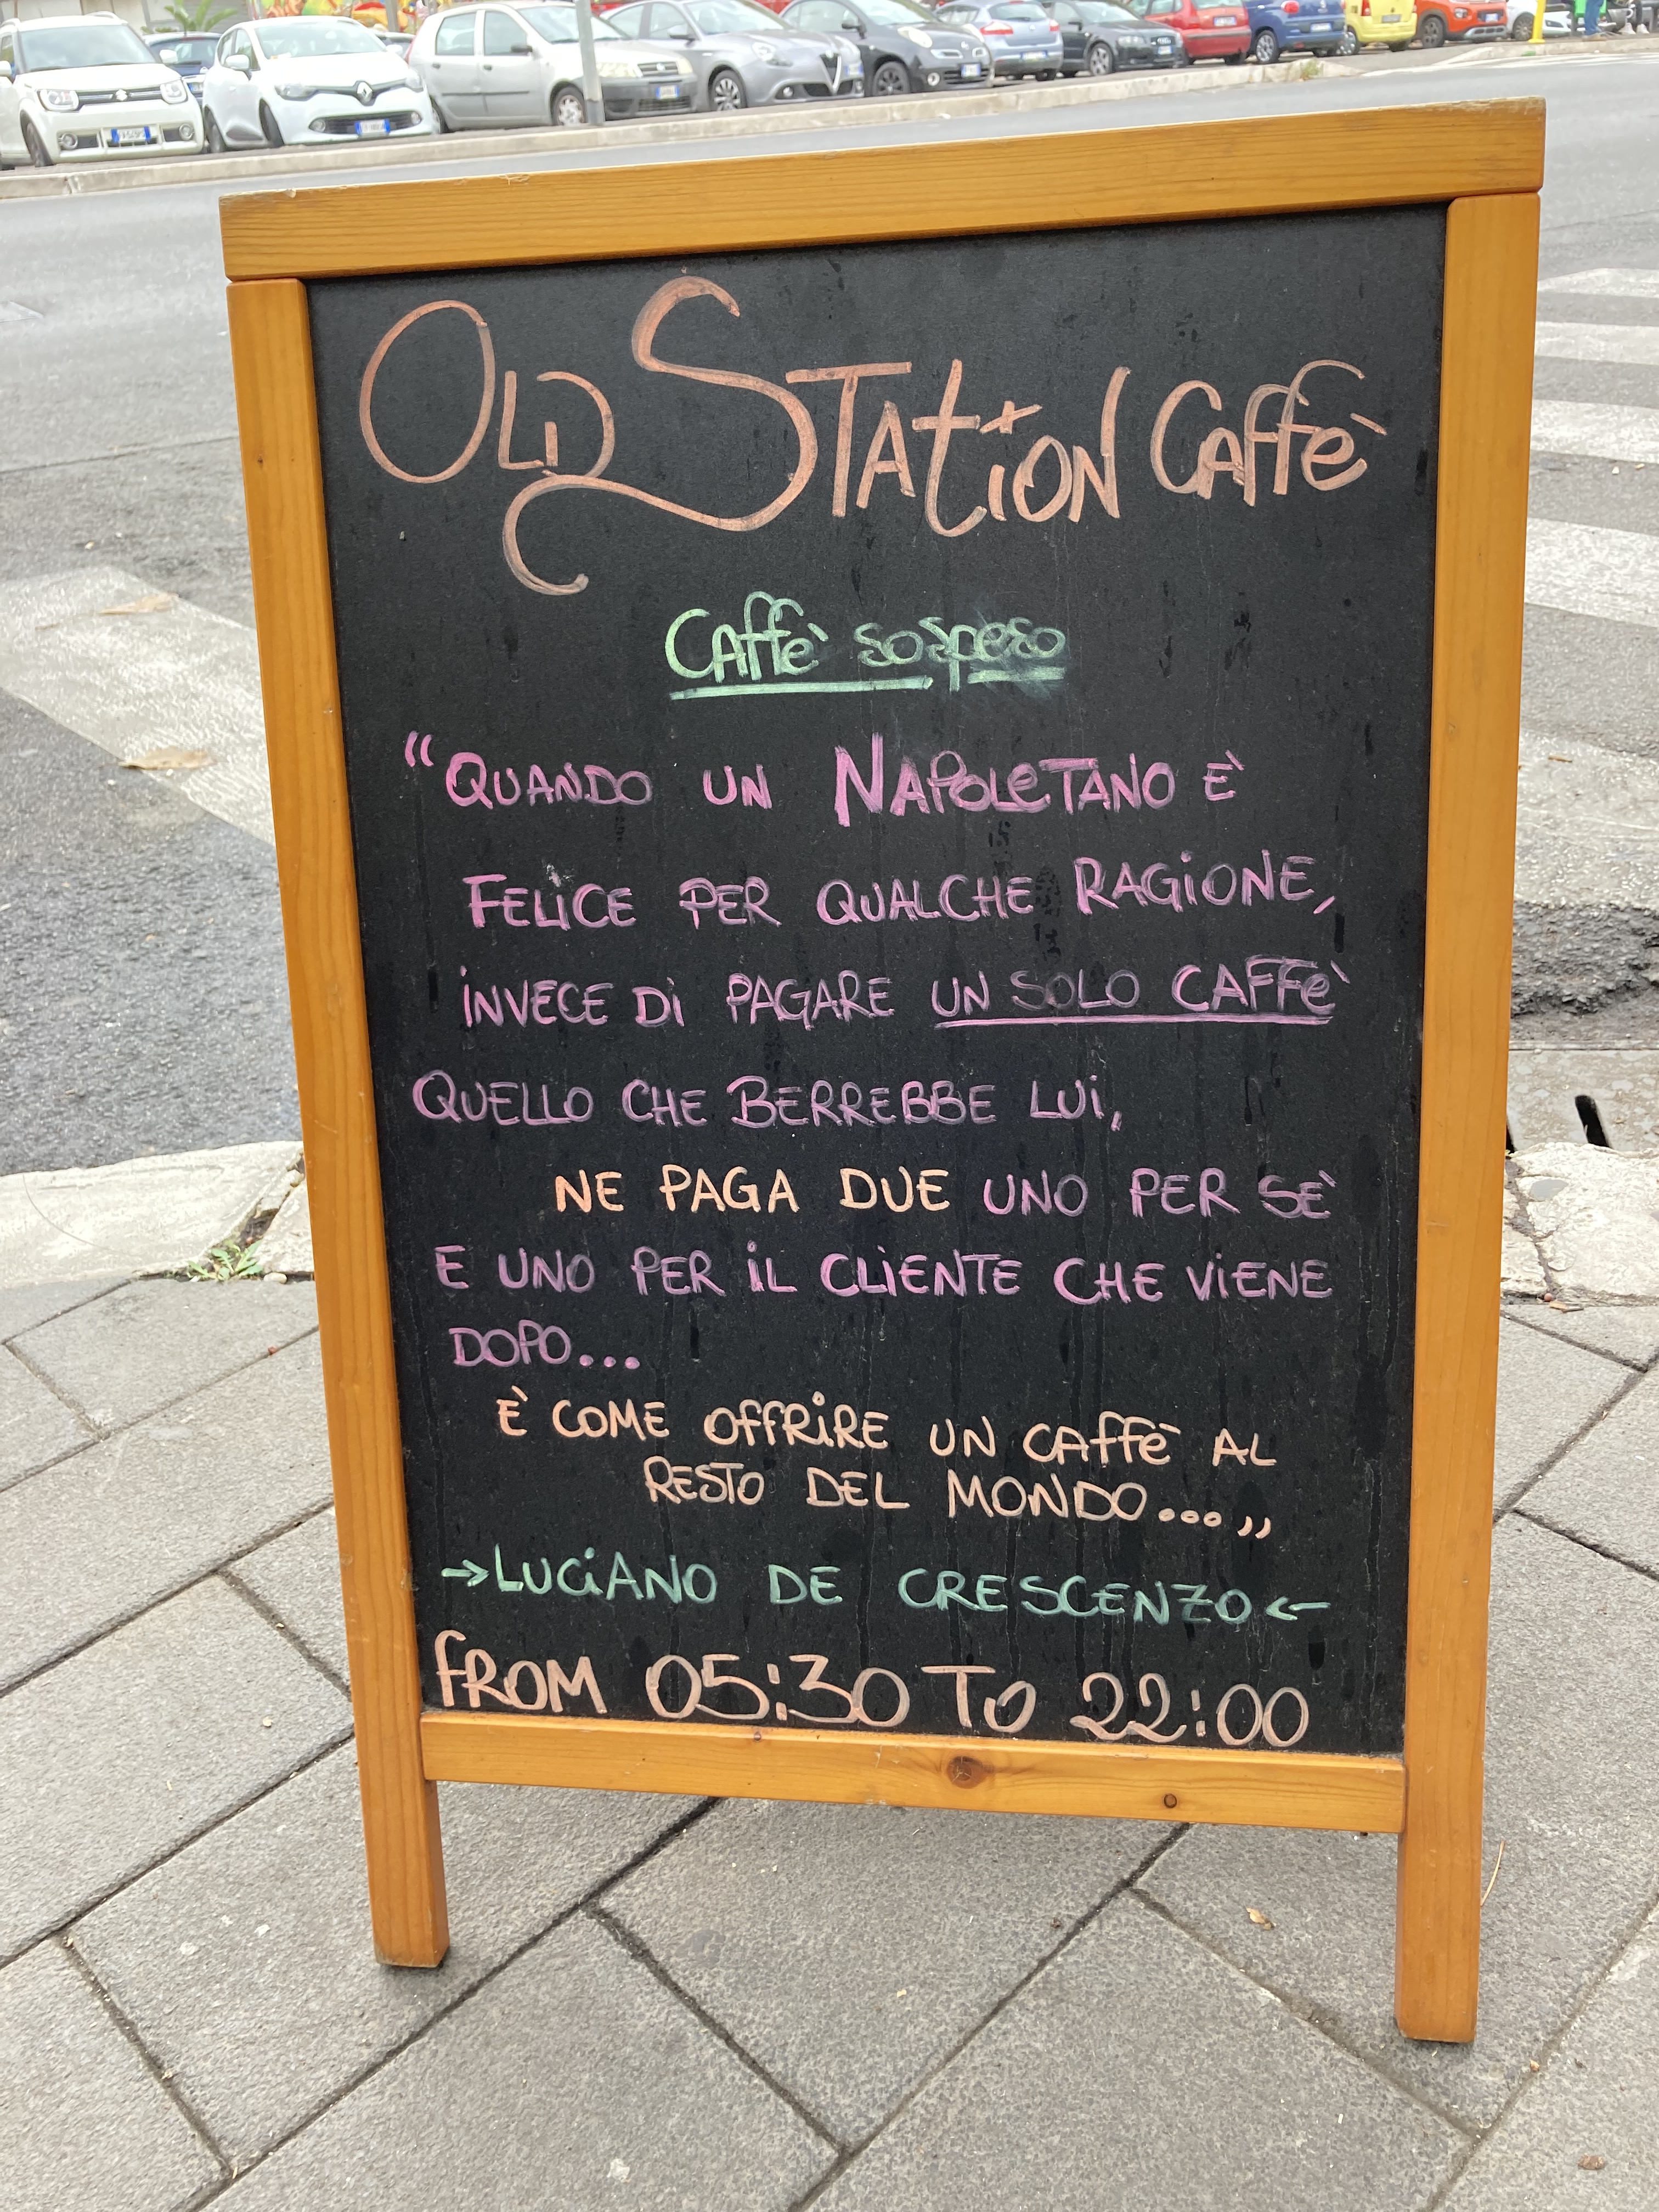 Old Station Caffè
Caffè sospeso
“QUANDO UN NAPOLETANO È
FELICE PER QUALCHE RAGIONE,
INVECE DI PAGARE UN SOLO CAFFÈ
QUELLO CHE BERREBBE LUI,
NE PAGA DUE UNO PER SÈ
E UNO PER IL CLIENTE CHE VIENE
DOPO...
È COME OFFRIRE UN CAFFÈ AL
RESTO DEL MONDO...„
→LUCIANO DE CRESCENZO←
FROM 05:30 TO 22:00